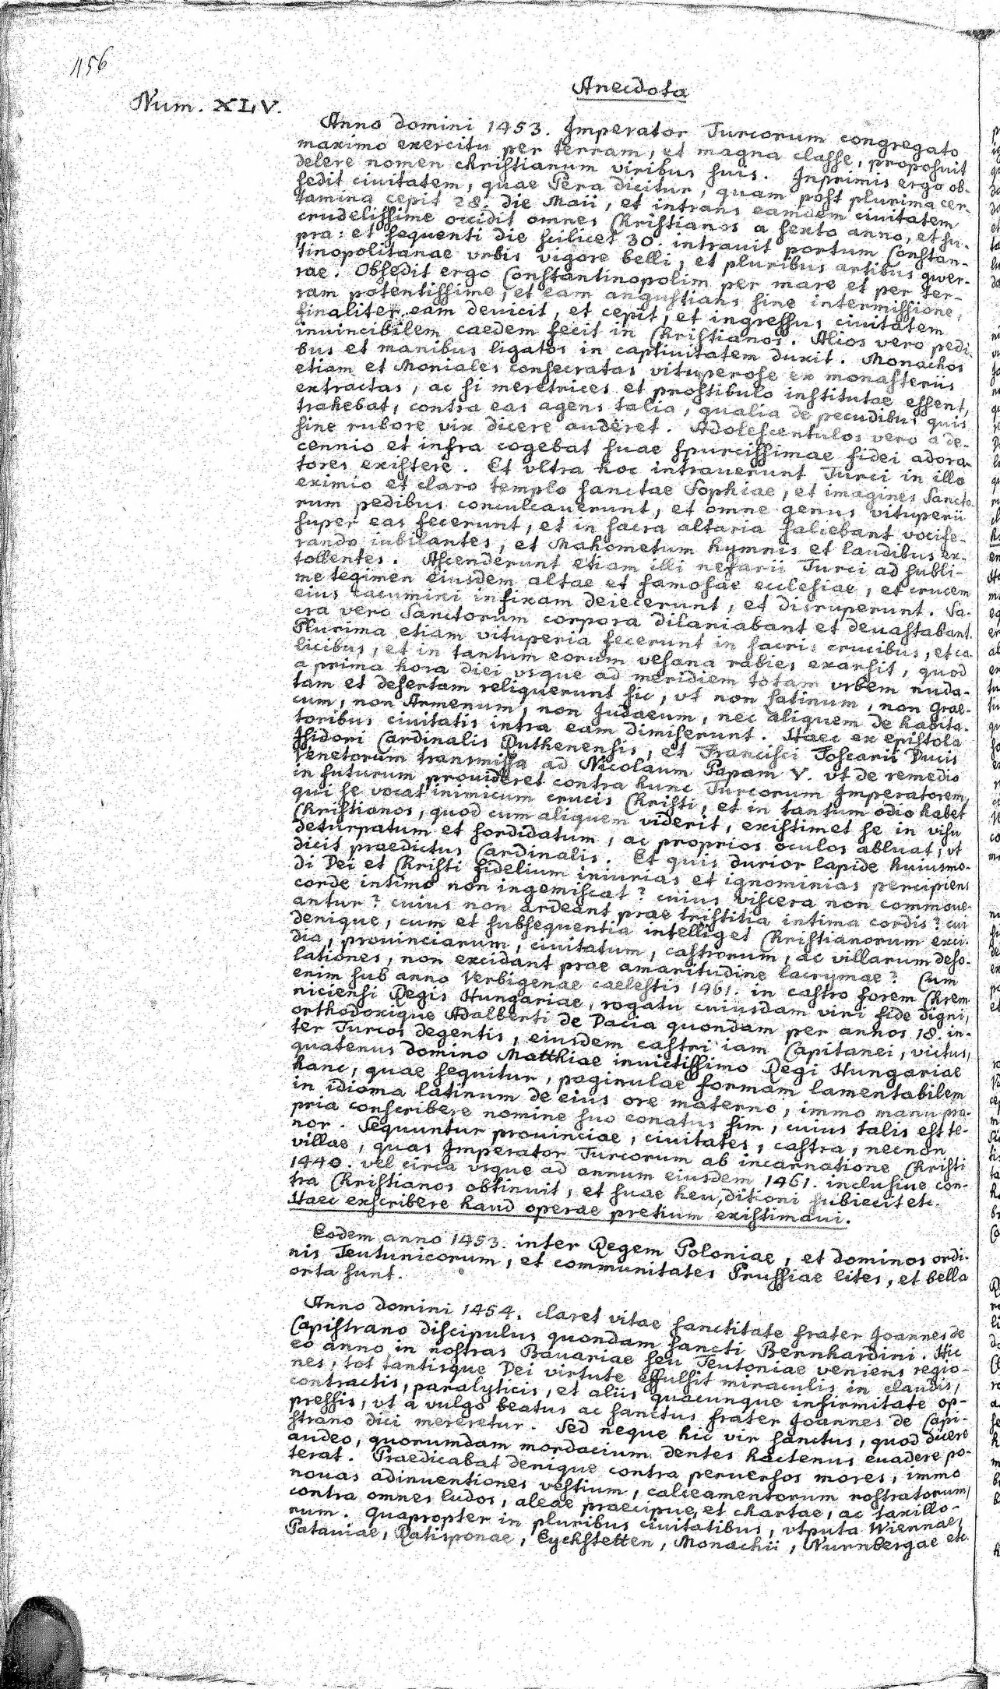 456
Anecdota
Num. XLV.
Anno domini 1453. Imperator Turcorum congregato
maximo exercitu per terram, et magna classe, proposuit
delere nomen christianum viribus suis. Inprimis ergo ob-
sedit civitatem, quae Pera dicitur, quam post plurima cer-
tamina cepit 28. die Maii, et intrans eamdem civitatem
crudelissime occidit omnes Christianos a sexto anno, et su-
pra: et sequenti die scilicet 30. intravit portum Constan-
tinopolitanae vrbis vigore belli, et pluribus artibus guer-
rae. Obsedit ergo Constantinopolim per mare et per ter-
ram potentissime, et eam angustians sine intermissione,
finaliter eam devicit, et cepit, et ingressus civitatem
invincibilem caedem fecit in Christianos. Alios vero pedi-
bus et manibus ligatos in captivitatem duxit. Monachos
etiam et Moniales consecratas vituperose ex monasteriis
extractas, ac si meretrices et prostibulo institutae essent,
trahebat, contra eas agens talia, qualia de pecudibus quis
sine rubore vix dicere auderet. Adolescentulos vero a de-
cennio et infra cogebat suae spurcissimae fidei adora-
tores existere. Et vltra hoc intraverunt Turci in illo
eximio et claro templo sanctae Sophiae, et imagines Sancto-
rum pedibus conculcaverunt, et omne genus vituperii
super eas fecerunt, et in sacra altaria saliebant vocife-
rando iubilantes, et Mahometum hymnis et laudibus ex-
tollentes. Ascenderunt etiam illi nefarii Turci ad subli-
me tegimen eiusdem altae et famosae ecclesiae, et crucem
eius cacumini infixam deiecerunt, et disruperunt. Sa-
cra vero Sanctorum corpora dilaniabant et devastabant.
Plurima etiam vituperia fecerunt in sacris crucibus, et ca-
licibus, et in tantum eorum vesana rabies exarsit, quod
a prima hora diei vsque ad meridiem totam vrbem nuda-
tam et desertam reliquerunt sic, vt non Latinum, non Grae-
cum, non Armenum, non Judaeum, nec aliquem de habita-
toribus civitatis intra eam dimiserunt. Haec ex epistola
Isidori Cardinalis Ruthenensis, et Francisci Foscarii Ducis
Venetorum transmissa ad Nicolaum Papam V. vt de remedio
in futurum provideret contra hunc Turcorum Imperatorem,
qui se vocat inimicum crucis Christi, et in tantum odio habet
Christianos, quod cum aliquem viderit, existimet se in visu
deturpatum et sordidatum, ac proprios oculos abluat, vt
dicit praedictus Cardinalis. Et quis durior lapide huiusmo-
di Dei et Christi fidelium iniurias et ignominias percipiens
corde intimo non ingemiscat? cuius viscera non commove-
antur? cuius non ardeant prae tristitia intima cordis? cui
denique, cum et subsequentia intelliget Christianorum exci-
dia, provinciarum, civitatum, castrorum, ac villarum deso-
lationes, non excidant prae amaritudine lacrymae? Cum
enim sub anno Verbigenae caelestis 1461. in castro forem Chrem
niciensi Regis Hungariae, rogatu cuiusdam viri fide digni,
orthodoxique Adalberti de Dacia quondam per annos 18. in-
ter Turcos degentis, eiusdem castri iam Capitanei, victus,
quatenus domino Matthiae invictissimo Regi Hungariae
hanc, quae sequitur, paginulae formam lamentabilem
in idioma latinum de eius ore materno, immo manu pro-
pria conscribere nomine suo conatus sim, cuius talis est te-
nor. Sequuntur provinciae, civitates, castra, necnon
villae, quas Imperator Turcorum ab incarnatione Christi
1440. vel circa vsque ad annum eiusdem 1461. inclusive con-
tra Christianos obtinuit, et suae heu, ditioni subiecit etc.
Haec exscribere haud operae pretium existimavi.
Eodem anno 1453. inter Regem Poloniae, et dominos ordi-
nis Teutunicorum, et communitates Prussiae lites, et bella
orta sunt.
Anno domini 1454. claret vitae sanctitate frater Joannes de
Capistrano discipulus quondam sancti Bernhardini. Hic
eo anno in nostras Bavariae seu Teutoniae veniens regio-
nes, tot tantisque Dei virtute effulsit miraculis in claudis,
contractis, paralyticis, et aliis quacunque infirmitate op-
pressis, vt a vulgo beatus ac sanctus frater Joannes de Capi-
strano dici mereretur. Sed neque hic vir sanctus, quod dicere
audeo, quorumdam mordacium dentes hactenus evadere po-
terat. Praedicabat denique contra perversos mores, immo
novas adinventiones vestium, calceamentorum rostratorum,
contra omnes ludos, aleae praecipue, et chartae, ac taxillo-
rum. Quapropter in pluribus civitatibus, vtputa Wiennae,
Pataviae, Ratisponae, Eyckstetten, Monachii, Nurnbergae etc.